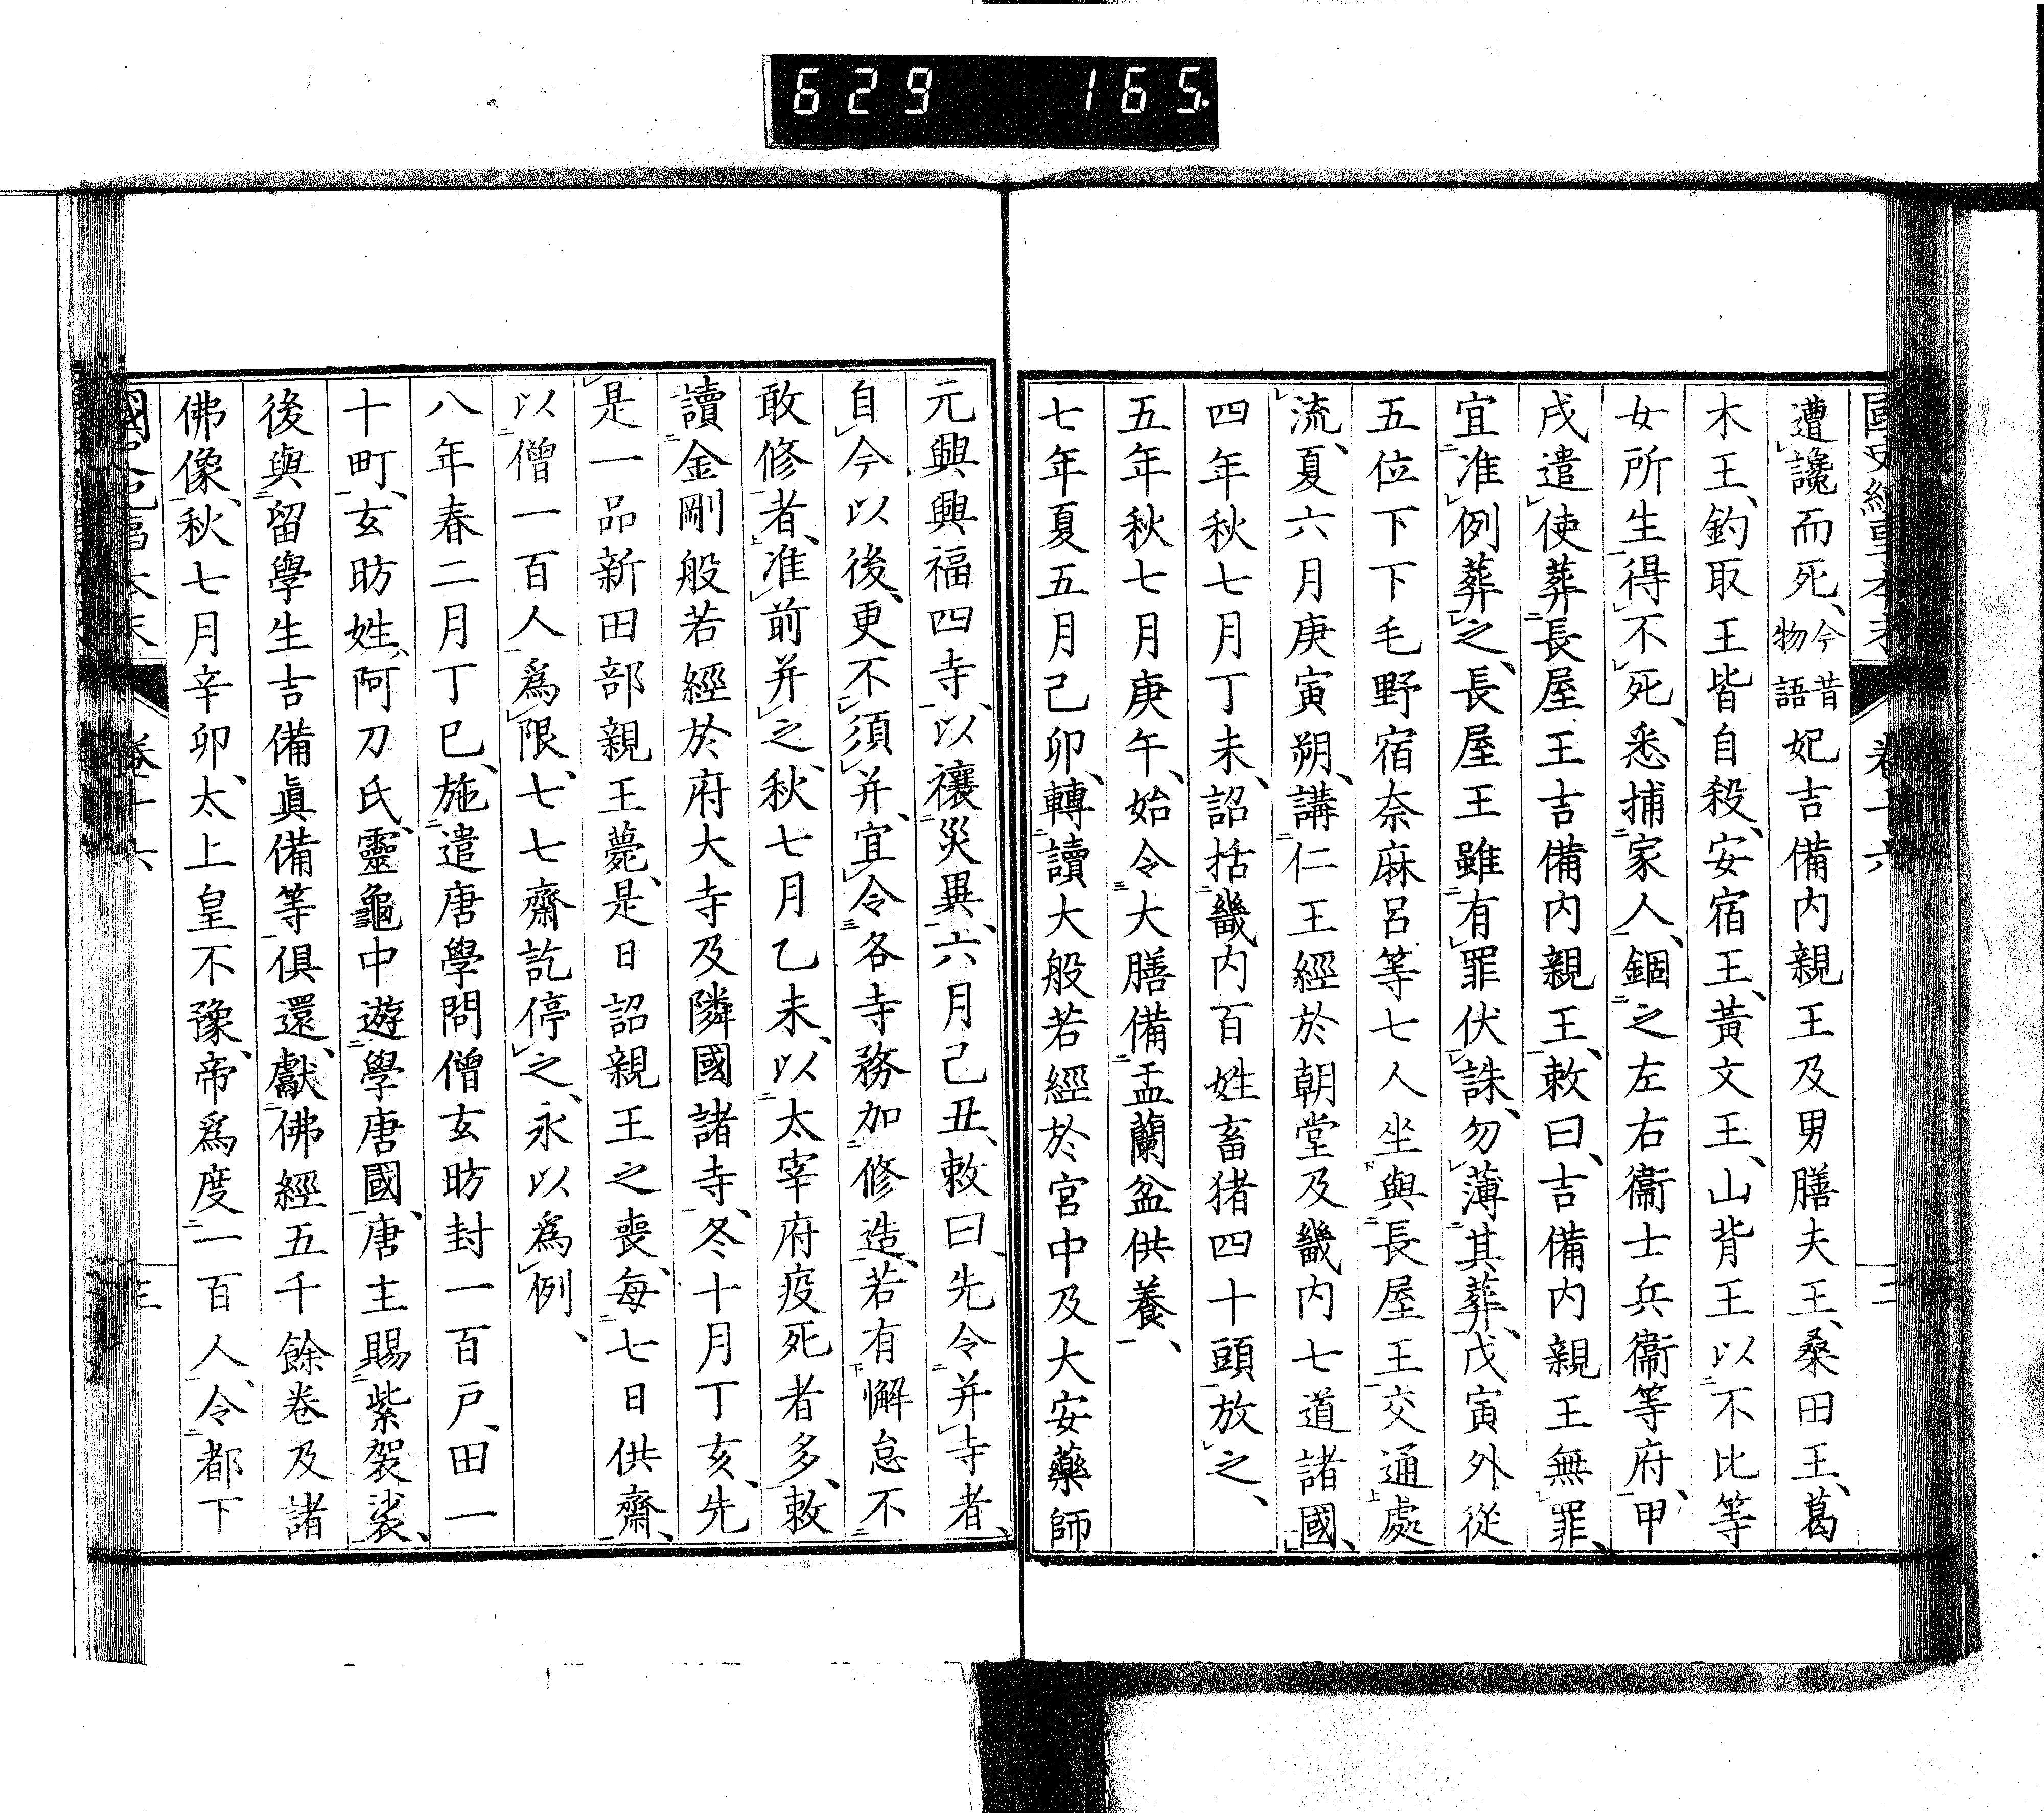 629 165.
遭讒而死、今昔物語妃吉備内親王及男膳夫王、桑田王、葛
木王、鈎取王皆自殺、安宿王、黃文王、山背王以不比等
女所生得不死、悉捕家人、錮之左右衞士兵衞等府、甲
戌遣使葬長屋王吉備内親王、敕曰、吉備内親王無罪、
宜准例葬之、長屋王雖有罪伏誅、勿薄其葬、戊寅外從
五位下下毛野宿奈麻呂等七人坐與長屋王交通處
流、夏六月庚寅朔、講仁王經於朝堂及畿内七道諸國、
四年秋七月丁未、詔括畿内百姓畜猪四十頭放之、
五年秋七月庚午、始令大膳備盂蘭盆供養、
七年夏五月己卯、轉讀大般若經於宮中及大安藥師
元興興福四寺、以禳災異、六月己丑、敕曰、先令并寺者、
自今以後、更不須并、宜令各寺務加修造、若有懈怠不
敢修者、准前并之、秋七月乙未、以太宰府疫死者多、敕
讀金剛般若經於府大寺及隣國諸寺、冬十月丁亥、先
是一品新田部親王薨、是日詔親王之喪、每七日供齋、
以僧一百人爲限、七七齋訖停之、永以爲例、
八年春二月丁巳、施遣唐學問僧玄昉封一百戸、田一
十町、玄昉姓、阿刀氏、靈龜中遊學唐國、唐主賜紫袈裟、
後與留學生吉備眞備等俱還、獻佛經五千餘卷及諸
佛像、秋七月辛卯、太上皇不豫、帝爲度一百人、令都下
卷十六